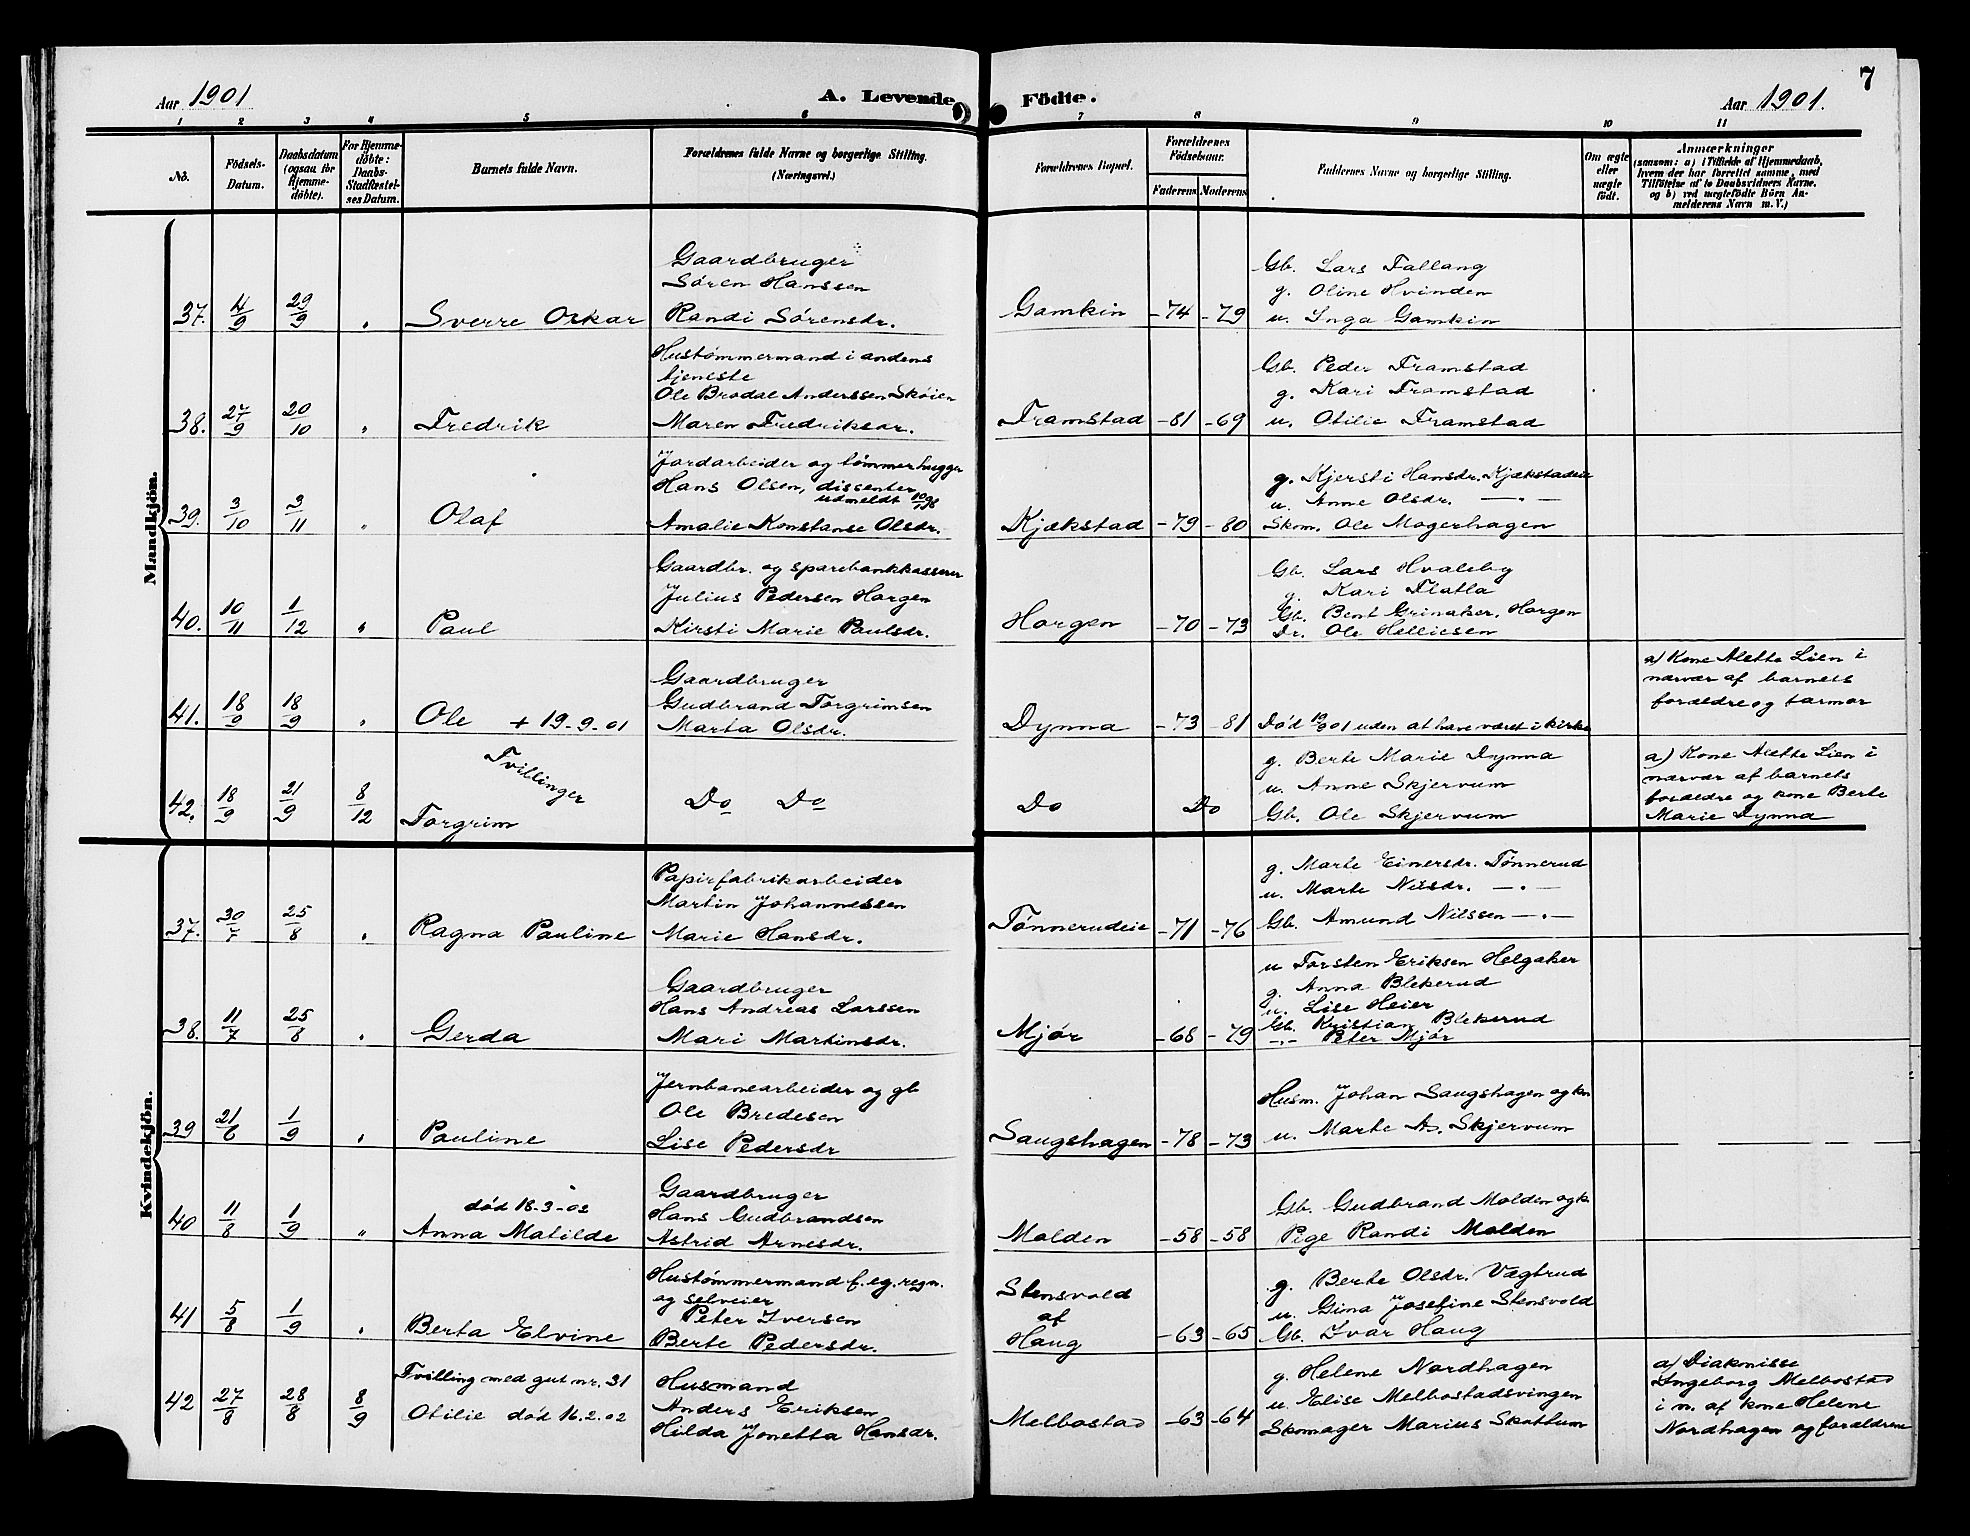 Aar 1901
A. Levende Födte.
7
Aar 1901.
1 2 3 4 5 6 7 8 9 10 11
No.
Födsels-Datum.
Daabsdatum (ogsaa for Hjemmedöbte).
For Hjemmedöbte: Daabs-Stadfæstelses Datum.
Barnets fulde Navn.
Forældrenes fulde Navne og borgerlige Stilling. (Næringsvei.)
Forældrenes Bopæl.
Forældrenes Födselsaar.
Faderens Moderens
Faddernes Navne og borgerlige Stilling.
Om ægte eller uægte födt.
Anmærkninger
(saasom: a) i Tilfælde af Hjemmedaab,
hvem der har forrettet samme, med
Tilföielse af to Daabsvidners Navne.
og b) ved uægtefödte Börn An-
melderens Navn m. V.)
Mandkjön.
37. 4/9 29/9 " Sverre Oskar
Gaardbruger
Søren Hanssen
Randi Sørensdr.
Gamkin -74 -79
Gb. Lars Fallang
g. Oline Hvinden
u. Inga Gamkin
38. 27/9 20/10 " Fredrik
Hustømmermand i andens
tjeneste
Ole Brodal Anderssen Skøien
Maren Fredriksdr.
Framstad -81 -69
Gb. Peder Framstad
g. Kari Framstad
u. Otilie Framstad
39. 3/10 3/11 " Olaf
Jordarbeider og tømmerhugger
Hans Olsen, dissenter
udmeldt
Amalie Konstanse Olsdr.
Kjækstad -79 -80
g. Kjersti Hansdr. Kjækstadeie
u. Anne Olsdr. —"—
Skom. Ole Magerhagen
40. 10/11 1/12 " Paul
Gaardbr. og sparebankkasserer
Julius Pedersen Horgen
Kirsti Marie Paulsdr.
Horgen -70 -73
Gb. Lars Hvaleby
g. Kari Flatla
Gb. Bent Grinaker, Horgen
Dr. Ole Helliesen
41. 18/9 18/9 " Ole + 19-9-01
Gaardbruger
Gudbrand Torgrimsen
Marta Olsdr.
Dynna -73 -81
Død 19/9 01 uden at have været i kirke
a) Kone Alette Lien i
nærvær af barnets
forældre og farmor
Tvillinger
42. 18/9 21/9 8/12 Torgrim
Do Do
Do Do
g. Berte Marie Dynna
u. Anne Skjervum
Gb. Ole Skjervum
a) Kone Alette Lien i
nærvær af barnets
forældre og kone Berte
Marie Dynna
Kvindekjön.
37. 30/7 25/8 " Ragna Pauline
Papirfabrikarbeider
Martin Johannessen
Marie Hansdr.
Tønnerudeie -71 -76
g. Marte Einersdr. Tønnerud
u. Marte Nilsdr. —"—
Gb. Amund Nilssen —"—
38. 11/7 25/8 " Gerda
Gaardbruger
Hans Andreas Larssen
Mari Martinsdr.
Mjør -68 -79
u Torsten Eriksen Helgaker
g. Anna Blekerud
u. Lise Heier
Gb. Kristian Blekerud
—"— Peter Mjør
39 21/6 1/9 " Pauline
Jernbanearbeider og gb
Ole Bredesen
Lise Pedersdr
Saugshagen -78 -73
Husm. Johan Saugshagen og kn
u. Marte A. Skjervum
40 11/8 1/9 " død 18-3-02
Anna Matilde
Gaardbruger
Hans Gudbrandsen
Astrid Arnesdr.
Molden -58 -58
Gb. Gudbrand Molden og k.
Pige Randi Molden
41 5/8 1/9 " Berta Elvine
Hustømmermand f. eg. regn.
og selveier
Peter Iversen
Berte Pedersdr.
Stensvold
af
Haug -63 -65
g. Berte Olsdr. Vægtrud
u. Gina Josefine Stensvold
Gb. Ivar Haug
42 27/8 28/8 8/9 Tvilling med gut nr. 31
Otilie død 16.2.02
Husmand
Anders Eriksen
Hilda Jonetta Hansdr.
Melbostad -63 -64
g. Helene Nordhagen
u. Elise Melbostadsvingen
Skomager Marius Skattum
a) Diakonisse
Ingeborg Melbostad
i n. af kone Helene
Nordhagen og forældrene